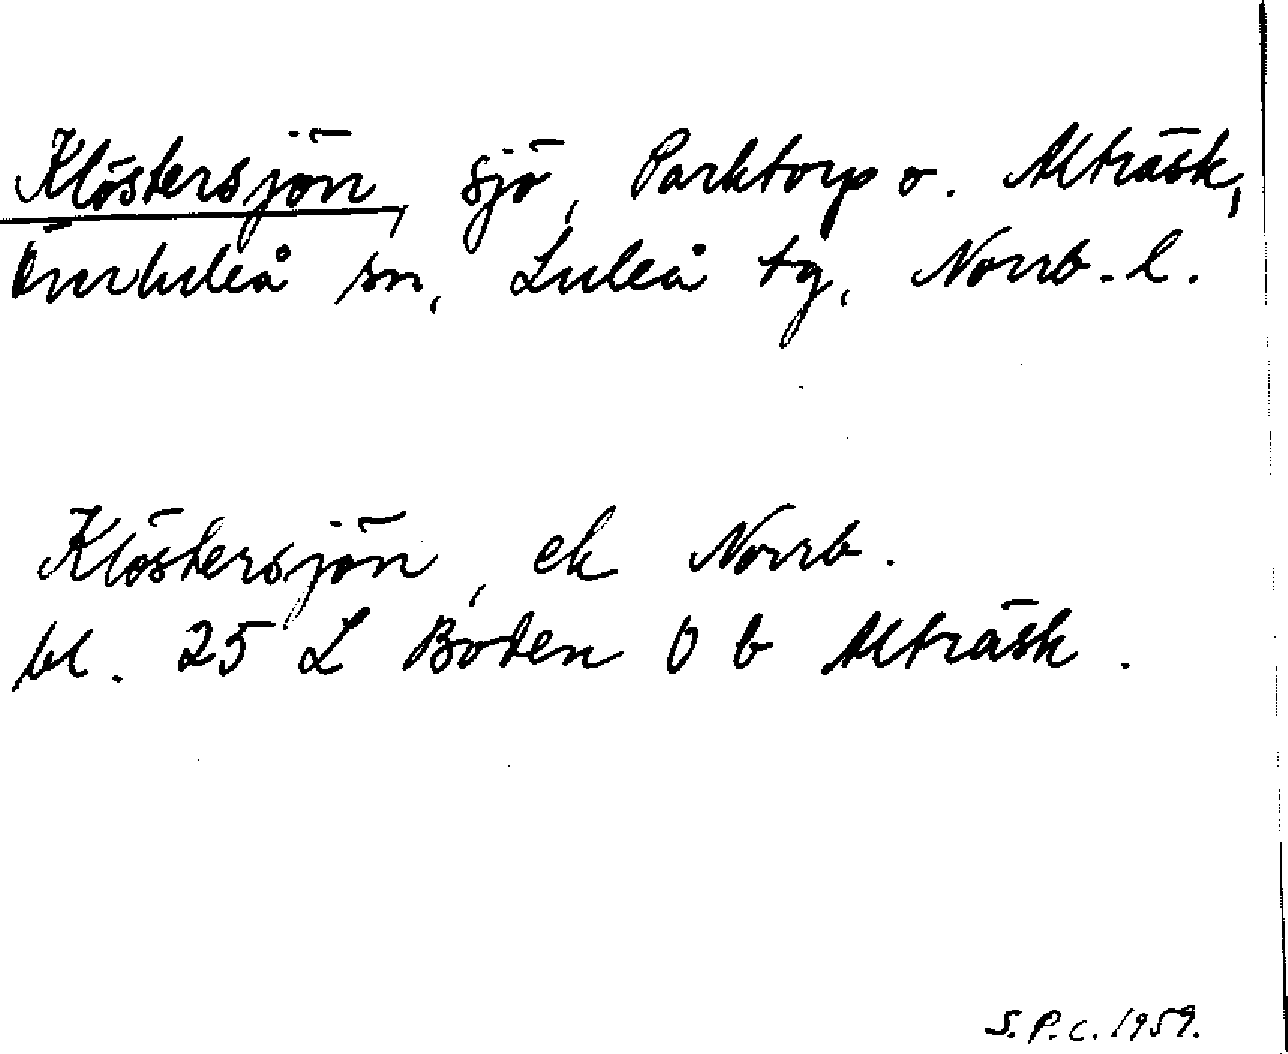 Klöstersjön, sjö, Parktorp o. Alträsk,
Överluleå sn, Luleå tg, Norrb. l.
Klöstersjön, ek Norrb.
bl. 25 L Boden O b Alträsk.
S.P.C. 1959.